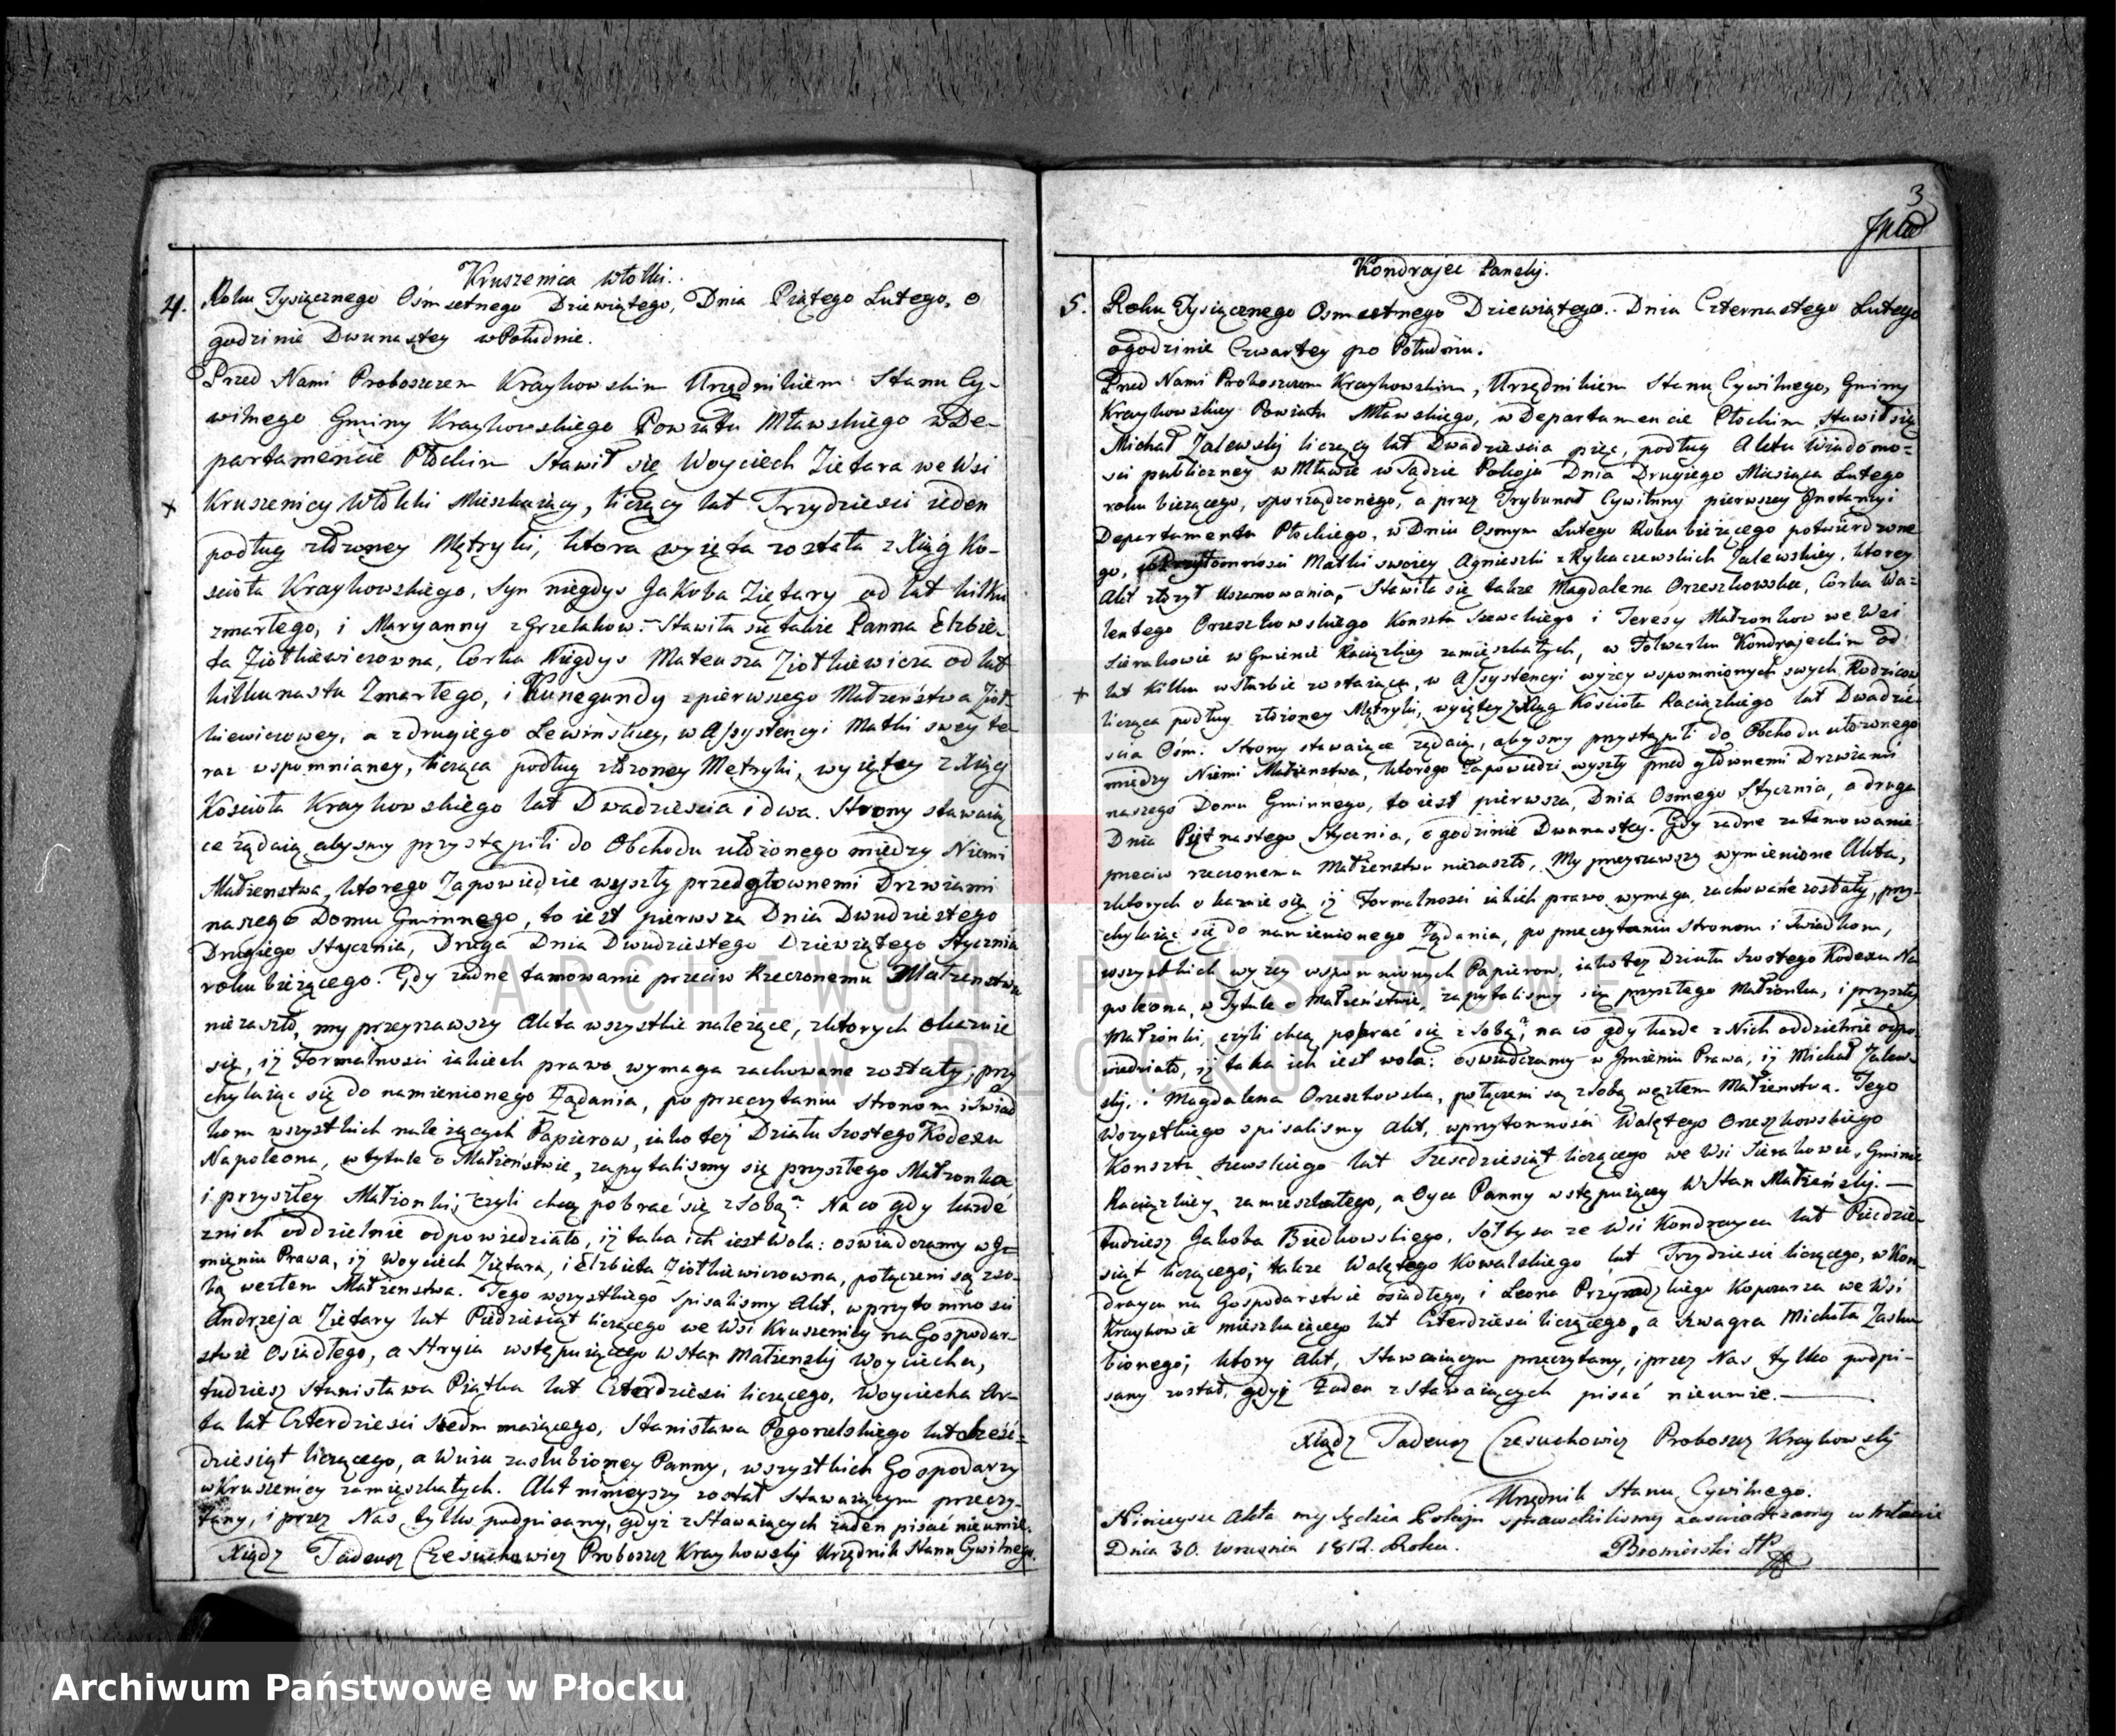 Kruszenica Włolki.
4. Roku Tysiącznego Ośmsetnego Dziewiątego, Dnia Piątego Lutego, o
godzinie Dwunastey w Południe.
Przed Nami Proboszczem Kraykowskim Urzędnikiem Stanu Cy-
wilnego Gminy Kraykowskiego Powiatu Mławskiego w De-
partamencie Płockim Stawił się Woyciech Ziętara we Wsi
Kruszenicy Włolki Mieszkaiący, liczący lat Trzydzieści ieden
podług złożoney Metryki, ktora wyięta została z Xiąg Ko-
ścioła Kraykowskiego, syn niegdys Jakoba Ziętary od lat kilku
zmarłego, i Maryanny z Grzelakow. Stawiła się także Panna Elzbie-
ta Ziołkiewiczowna, Corka Niegdys Mateusza Ziołkiewicza od lat
kilkunastu Zmarłego, i Kunegundy z pierwszego Małżeństwa Zioł-
kiewiczowey, a z drugiego Lewinskiey, w Assystencyi Matki swey te-
raz wspomnianey, licząca podług złożoney Metryki, wyiętey z Xiąg
Kościoła Kraykowskiego lat Dwadzieścia i dwa. Strony stawaią-
ce żądaią abysmy przystąpili do Obchodu ułożonego między Niemi
Małżenstwa, ktorego Zapowiedzie wyszły przed głownemi Drzwiami
naszego Domu Gminnego, to iest pierwsza Dnia Dwudziestego
Drugiego Stycznia, Druga Dnia Dwudziestego Dziewiątego Stycznia
roku bieżącego. Gdy żadne tamowanie przeciw Rzeczonemu Małżenstwu
niezaszło, my przeyrzawszy Akta wszystkie należące, z ktorych okazuie
się, iż Formalnosci iakich prawo wymaga zachowane zostały, przy
chylaiąc się do namienionego Żądania, po przeczytaniu Stronom i Swiad
kom wszystkich należących Papierow, iako też Działu Szostego Kodexu
Napoleona, w tytule o Małżeństwie, zapytalismy się przyszłego Małżonka
i przyszłey Małżonki, czyli chcą pobrać się z sobą? Na co gdy każde
z nich oddzielnie odpowiedziało, iż taka ich iest Wola: oswiadczamy w I-
mieniu Prawa, iż Woyciech Ziętara, i Elzbieta Ziołkiewiczowna, połączeni są z so-
bą węzłem Małżenstwa. Tego wszystkiego spisalismy Akt, w przytomnosci
Andrzeja Ziętary lat Pięćdziesiąt liczącego we Wsi Kruszenicy na Gospodar-
stwie Osiadłego, a Stryia wstępuiącego w Stan Małżenski Woyciecha,
tudziesz Stanisława Piątka lat Czterdziesci liczącego, Woyciecha
ta lat Czterdziesci siedm maiącego, Stanisława Pogorzelskiego lat sześć-
dziesiąt liczącego, a Wuia zaslubioney Panny, wszystkich Gospodarzy
w Kruszenicy zamięszkałych. Akt ninieyszy został Stawaiącym przeczy-
tany, i przez Nas tylko podpisany, gdyż z Stawaiących żaden pisać nieumie.
Xiądz Tadeusz Czesuchowicz Proboszcz Kraykowski Urzędnik Stanu Cywilnego.
3
Kondrajec Panski.
5. Roku Tysiącznego Osmsetnego Dziewiątego. Dnia Czternastego Lutego
o godzinie Czwartey po Południu.
Przed Nami Proboszczem Kraykowskim, Urzędnikiem Stanu Cywilnego, Gminy
Kraykowskiey Powiatu Mławskiego, w Departamencie Płockim Stawił się
Michał Zalewski liczący lat Dwadziescia pięc, podług Aktu Wiadomo-
sci publiczney w Mławie w Sądzie Pokoju Dnia Drugiego Miesiąca Lutego
roku bieżącego, sporządzonego, a przez Trybunał Cywilnny pierwszey Instancyi
Departamentu Płockiego, w Dniu Osmym Lutego Roku bieżącego potwierdzone
go, w Przytomnosci Matki swoiey Agnieszki z Rykaczewskich Zalewskiey, ktorey
Akt złożył Uszanowania, Stawiła się także Magdalena Orzeszkowska, Corka Wa-
lentego Orzeszkowskiego Kunsztu Szewckiego i Teresy Małżonkow we Wsi
Sierakowie w Gminie Raciązkiey zamięszkałych, w Folwarku Kondrajeckim od
lat Kilku w służbie zostaiąca, w Assystencyi wyżey wspomnionych swych Rodzicow
licząca podług złożoney Metryki, wyiętey z Xiąg Kościoła Raciązkiego lat Dwadzie-
scia Osm. Strony stawaiące żądaią, abysmy przystąpili do Obchodu ułożonego
między Niemi Małżenstwa, ktorego Zapowiedzi wyszły przed głównemi Drzwiami
naszego Domu Gminnego, to iest pierwsza, Dnia Osmego Stycznia, a druga
Dnia Piętnastego Stycznia, o godzinie Dwunastey. Gdy żadne zatamowanie
przeciw rzeczonemu Małżenstwu niezaszło, My przeyrzawszy wymienione Akta,
z ktorych okazuie się iż Formalnosci iakich prawo wymaga, zachowane zostały, przy-
chylaiąc się do namienionego Żądania, po przeczytaniu Stronom i Swiadkom,
wszystkich wyżey wspomnionych Papierow, iako też Działu Szostego Kodexu Na
poleona, w Tytule o Małżeństwie, zapytalismy się przyszłego Małżonka, i przyszłey
Małżonki, czyli chcą pobrać się z sobą? na co gdy każde z Nich oddzielnie odpo-
wiedziało, iż taka ich iest wola: oswiadczamy w Imieniu Prawa, iż Michał Zalew-
ski, i Magdalena Orzeszkowska, połączeni są z sobą węzłem Małżenstwa. Tego
Wszystkiego spisalismy Akt, w przytomności Walętego Orzeszkowskiego
Konsztu szewskiego lat Szesćdziesiąt liczącego we Wsi Sierakowie, Gminie
Raciązkiey zamieszkałego, a Oyca Panny wstępuiącey w Stan Małżeński.
Tudziesz Jakoba Biedkowskiego, Sołtysa ze Wsi Kondrayca lat Pięćdzie-
siąt liczącego; także Walętego Kowalskiego lat Trzydziesci liczącego, w Kon-
draycu na Gospodarstwie osiadłego, i Leona Kopcarza we Wsi
Kraykowie mieszkaiącego lat Czterdziesci liczącego, a Szwagra Michała Zaslu
bionego; ktory Akt, Stawaiącym przeczytany, i przez Nas tylko podpi-
sany został, gdyż Żaden z Stawaiących pisać nieumie.
Xiądz Tadeusz Czesuchowicz Proboszcz Kraykowski
Urzędnik Stanu Cywilnego.
Ninieysze Akta my Sędzia Pokoju sprawdziliśmy zaswiadczamy w Mławie
Dnia 30. Wrzesnia 1812. Roku.
ARCHIWUM PAŃSTWOWE
W PŁOCKU
Archiwum Państwowe w Płocku